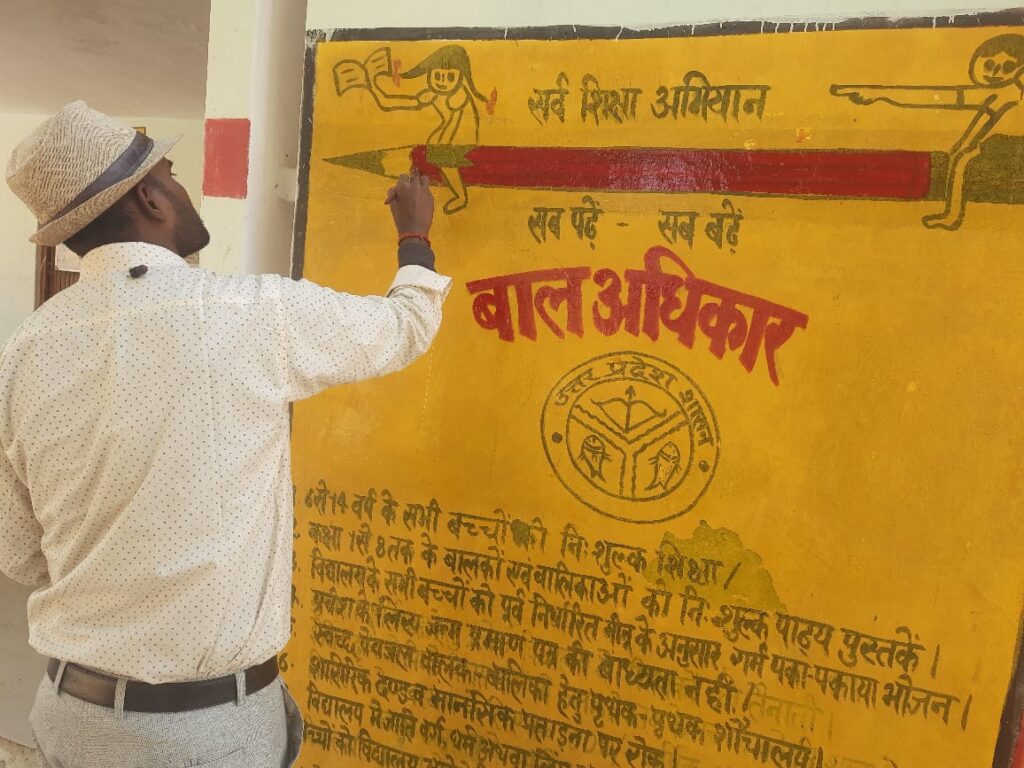 सर्व शिक्षा अभियान
सब पढ़ें - सब बढ़ें
बाल अधिकार
उत्तर प्रदेश शासन
6 से 14 वर्ष के सभी बच्चों को निःशुल्क शिक्षा।
कक्षा 1 से 8 तक के बालकों एवं बालिकाओं को निःशुल्क पाठ्य पुस्तकें।
विद्यालय के सभी बच्चों को पूर्व निर्धारित मीनू के अनुसार गर्म पका-पकाया भोजन।
प्रवेश के लिए जन्म प्रमाण पत्र की बाध्यता नहीं।
स्वच्छ पेयजल बालक-बालिका हेतु पृथक-पृथक शौचालय।
6. शारिरिक दण्ड व मानसिक प्रताड़ना पर रोक।
विद्यालय में जाति वर्ग, धर्म अथवा लिंग